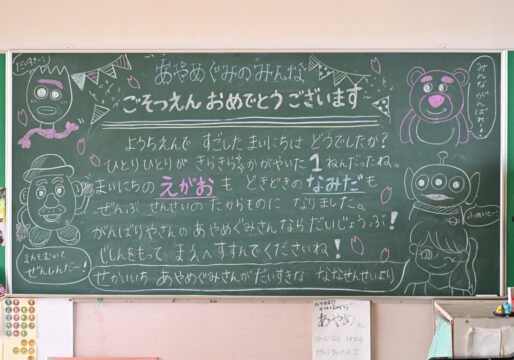 あやめぐみのみんな
ごそつえん おめでとうございます
ようちえんで すごした まいにちは どうでしたか？
ひとりひとりが きらきらかがやいた 1 ねんだったね。
まいにちの えがお も ときどきの なみだ も
ぜんぶ せんせいの たからものに なりました。
がんばりやさんの あやめぐみさんなら だいじょうぶ！
じしんをもって まえへすすんでくださいね！
せかいいち あやめぐみさんがだいすきな ななせんせいより
だいすきー！
みんな がんばれ！
まえをむいて
ぜんしんだー！
あやめ